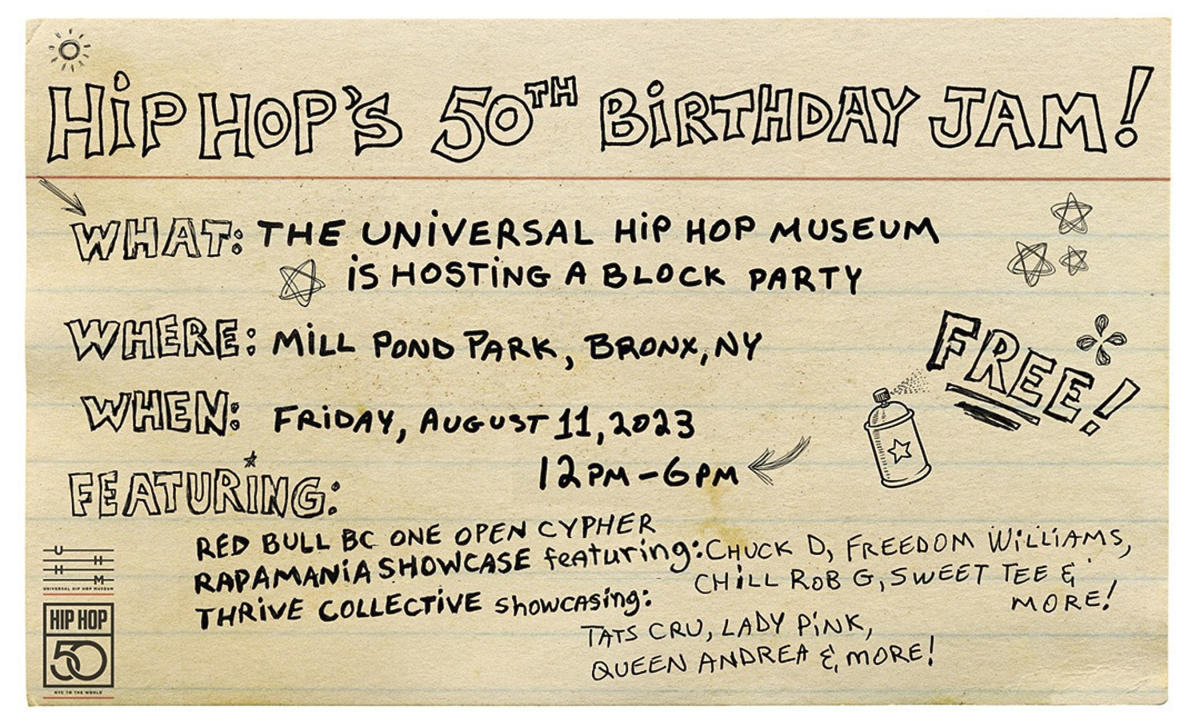 HiP HOP'S 50TH BiRTHDAY JAM!
WHAT: THE UNiVERSAL HiP HOP MUSEUM
iS HOSTING A BLOCK PARTY
WHERE: MiLL POND PARK, BRONX, NY
FREE!
WHEN: FRiDAY, AUGUST 11, 2023
12PM - 6PM
FEATURiNG:
RED BULL BC ONE OPEN CYPHER
RAPAMANiA SHOWCASE featuring: CHUCK D, FREEDOM WiLLiAMS,
CHiLL ROB G, SWEET TEE & MORE!
THRIVE COLLECTIVE showcasing:
TATS CRU, LADY PiNK,
QUEEN ANDREA & MORE!
U H
H M
UNIVERSAL HIP HOP MUSEUM
HIP HOP
50
NYC TO THE WORLD